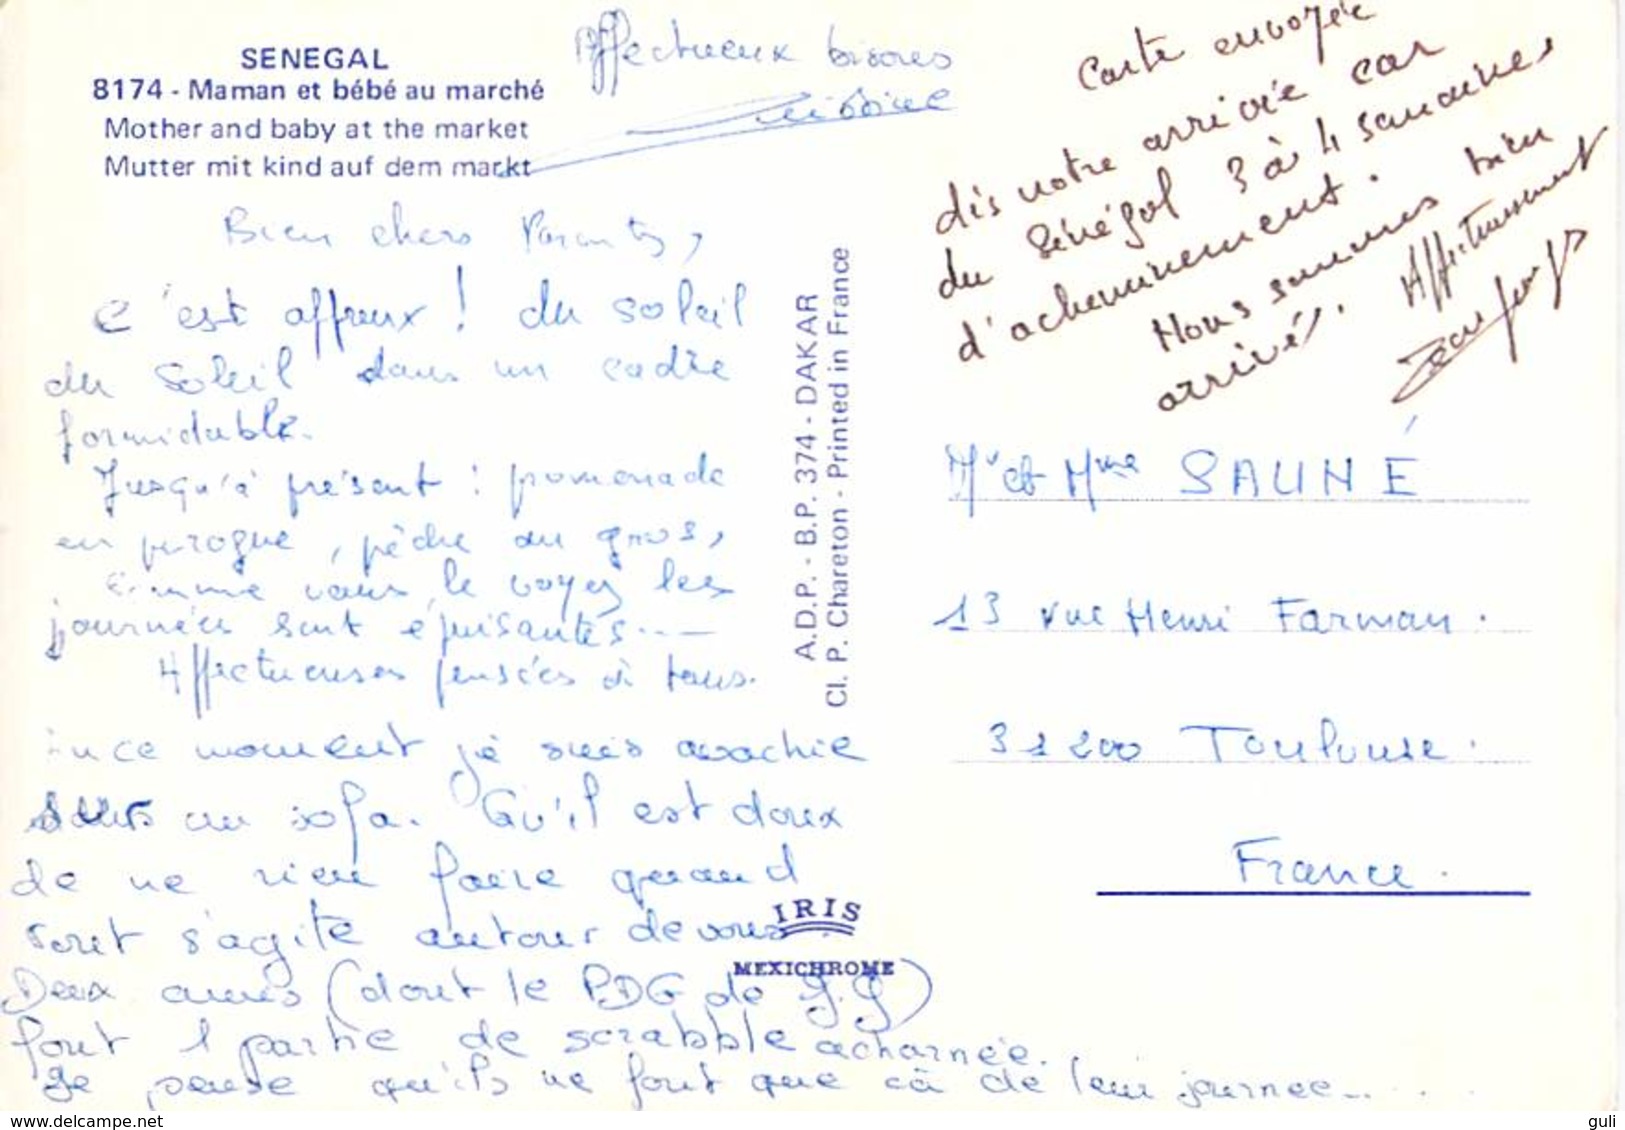 SENEGAL
8174 - Maman et bébé au marché
Mother and baby at the market
Mutter mit kind auf dem markt
Affectueux bisous
Bien chers Parents,
C'est affreux ! du soleil
du soleil dans un cadre
formidable.
Jusqu'à présent : promenade
en pirogue, pêche au gros,
comme vous le voyez les
journées sont épuisantes...
Affectueuses pensées à tous.
En ce moment je suis avachie
sur un sofa. Qu'il est doux
de ne rien faire quand
tout s'agite autour de vous
Deux amis (dont le PDG de J.J)
font 1 partie de scrabble acharnée.
Je pense qu'ils ne font que ça de leur journee.....
A.D.P. - B.P. 374 - DAKAR
Cl. P. Chareton - Printed in France
IRIS
MEXICHROME
Carte envoyée
dès notre arrivée car
du Sénégal 3 à 4 semaines
d'acheminement.
Nous sommes bien
arrivés. Affectueusement
Mr et Mme SAUNÉ
13 rue Henri Farman.
31200 Toulouse.
France.
guli